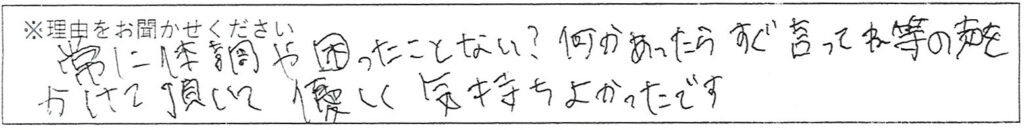 ※理由をお聞かせください
常に体調や困ったことない？何かあったらすぐ言ってね等の声を
かけて頂いて優しく気持ちよかったです